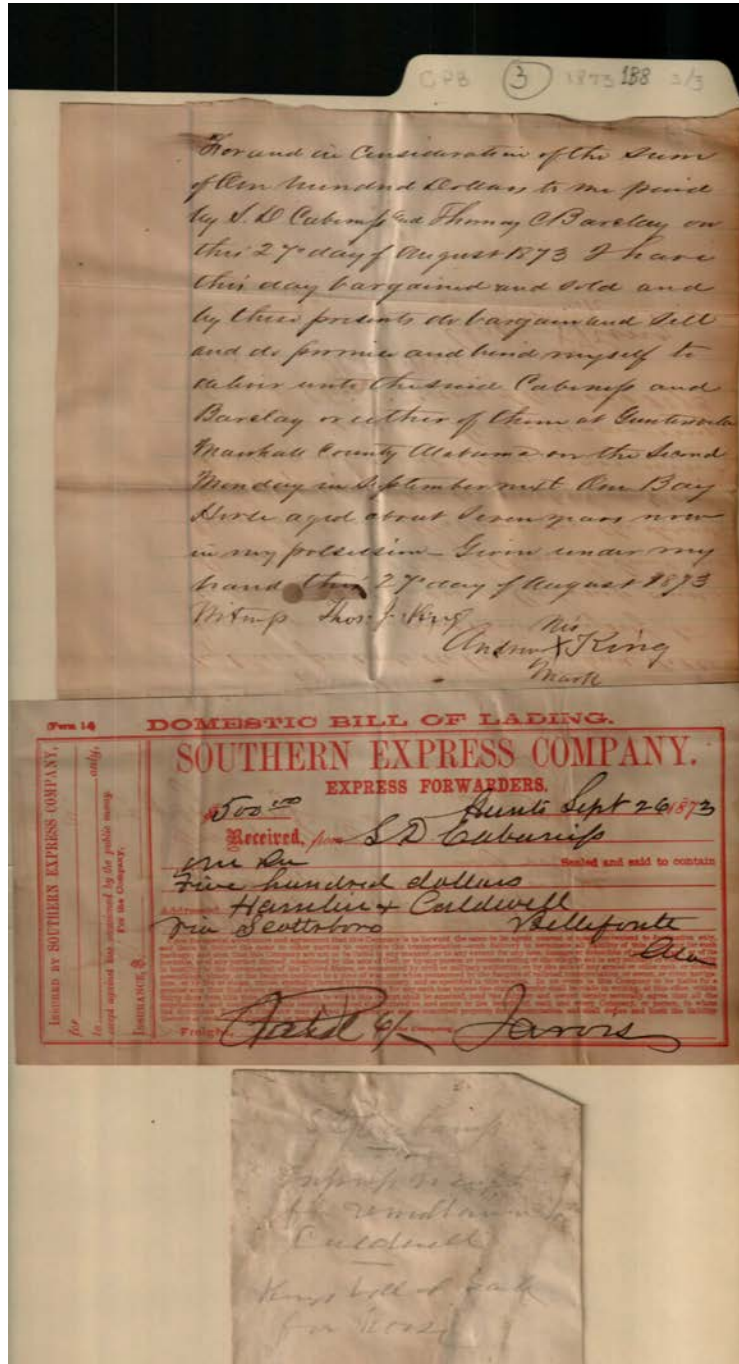 CPB 3 1873 188 3/3
For and in Consideration of the Sum
of One hundred Dollars to me paid
by S. D Cabaniss and Thomas C Barclay on
this 27th day of August 1873 I have
this day bargained and sold and
by these presents do bargain and Sell
and do promise and bind myself to
deliver unto the said Cabaniss and
Barclay or either of them at Guntersville
Marshall County Alabama on the Second
Monday in September next One Bay
Horse aged about Seven years now
in my possession – Given under my
hand this 27th day of August 1873
Witness Thos. J. King
his
Andrew X King
mark
(Form 14)
DOMESTIC BILL OF LADING.
SOUTHERN EXPRESS COMPANY.
EXPRESS FORWARDERS.
$500.00 Hunts Sept 26 1873
Received, from S D Cabaniss
One
Sealed and said to contain
Five hundred dollars
Addressed Hamlin & Caldwell
Via Scottsboro Bellefonte
Ala
Freight Paid For the Company, Jarvis
INSURED BY SOUTHERN EXPRESS COMPANY,
for
to only,
except against loss occasioned by the public enemy.
For the Company,
INSURANCE, $
S D Cabaniss
Express receipt
for remittance to
Caldwell
Kings bill of Sale
for horse